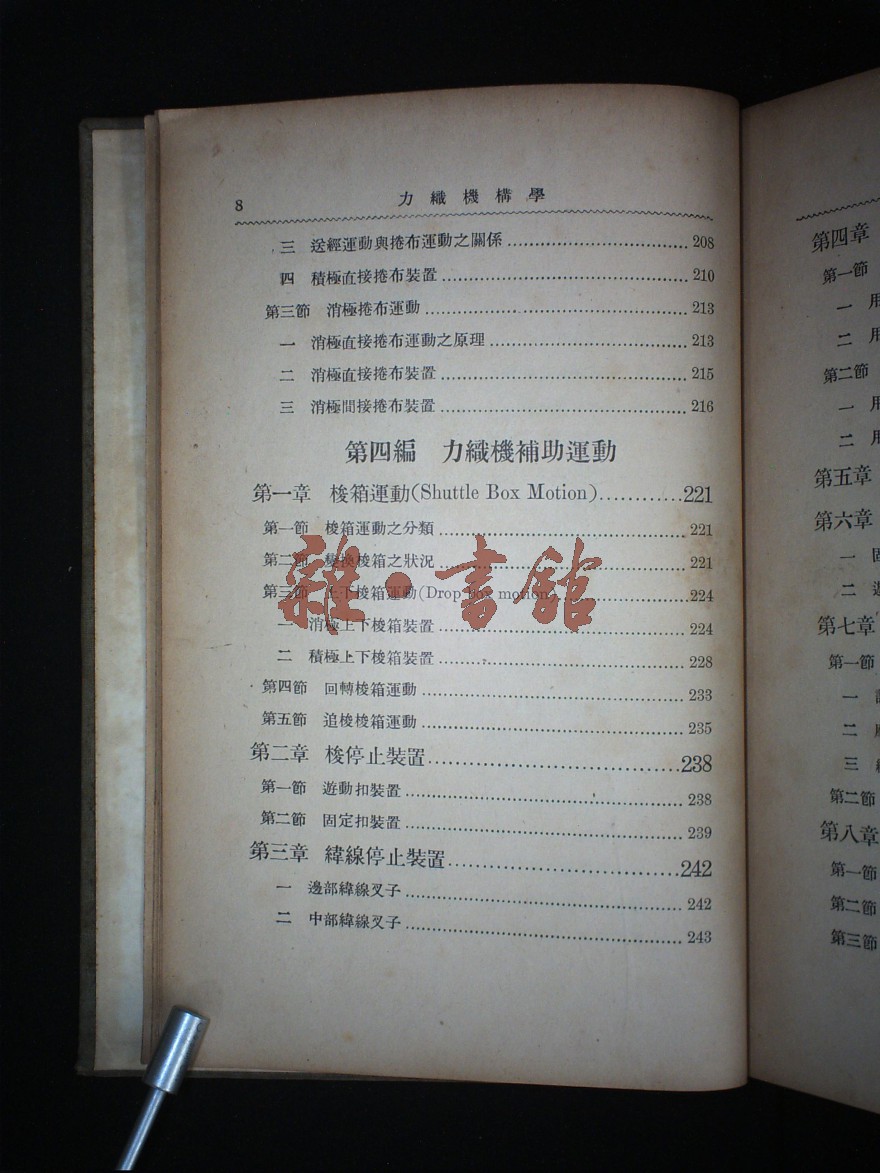 8 力織機構學
三 送經運動與捲布運動之關係 208
四 積極直接捲布裝置 210
第三節 消極捲布運動 213
一 消極直接捲布運動之原理 213
二 消極直接捲布裝置 215
三 消極間接捲布裝置 216
第四編 力織機補助運動
第一章 梭箱運動(Shuttle Box Motion) 221
第一節 梭箱運動之分類 221
第二節 變換梭箱之狀況 221
第三節 上下梭箱運動(Drop box motion) 224
一 消極上下梭箱裝置 224
二 積極上下梭箱裝置 228
第四節 回轉梭箱運動 233
第五節 追梭梭箱運動 235
第二章 梭停止裝置 238
第一節 遊動扣裝置 238
第二節 固定扣裝置 239
第三章 緯線停止裝置 242
一 邊部緯線叉子 242
二 中部緯線叉子 243
雜·書館
第四章
第一節
一 用
二 用
第二節
一 用
二 用
第五章
第六章
一 固
二
第七章
第一節
一
二
三
第二節
第八章
第一節
第二節
第三節